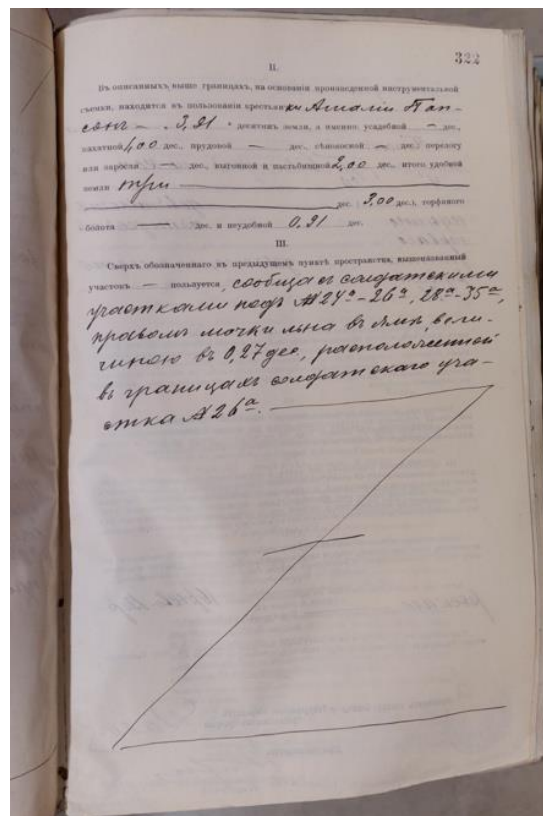 322
II.
Въ описанныхъ выше границахъ, на основаніи произведенной инструментальной
съемки, находится въ пользованіи крестьянки Амаліи Пап-
сонъ — 3,91 десятинъ земли, а именно: усадебной — дес.,
пахатной 1,00 дес., прудовой — дес., сѣнокосной — дес., перелогу
или заросли — дес., выгонной и пастбищной 2,00 дес., итого удобной
земли три
дес. (3,00 дес.), торфяного
болота — дес. и неудобной 0,91 дес.
III.
Сверхъ обозначеннаго въ предыдущемъ пунктѣ пространства, вышеназванный
участокъ — пользуется, сообща съ солдатскими
участками подъ № 24ᵃ-26ᵃ, 28ᵃ-35ᵃ,
правомъ мочки льна въ ямѣ, вели-
чиною въ 0,27 дес., расположенной
въ границахъ солдатскаго уча-
стка № 26ᵃ.